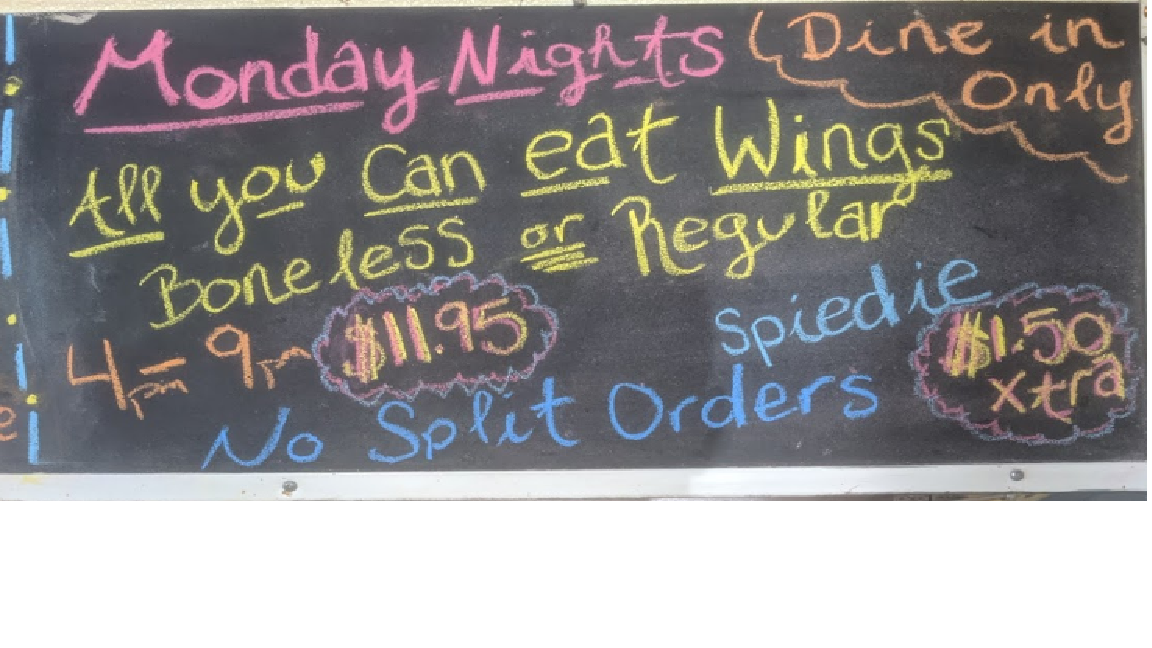 Monday Nights
Dine in
Only
All you Can eat Wings
Boneless or Regular
4pm - 9pm $11.95
Spiedie $1.50
xtra
No Split Orders
e